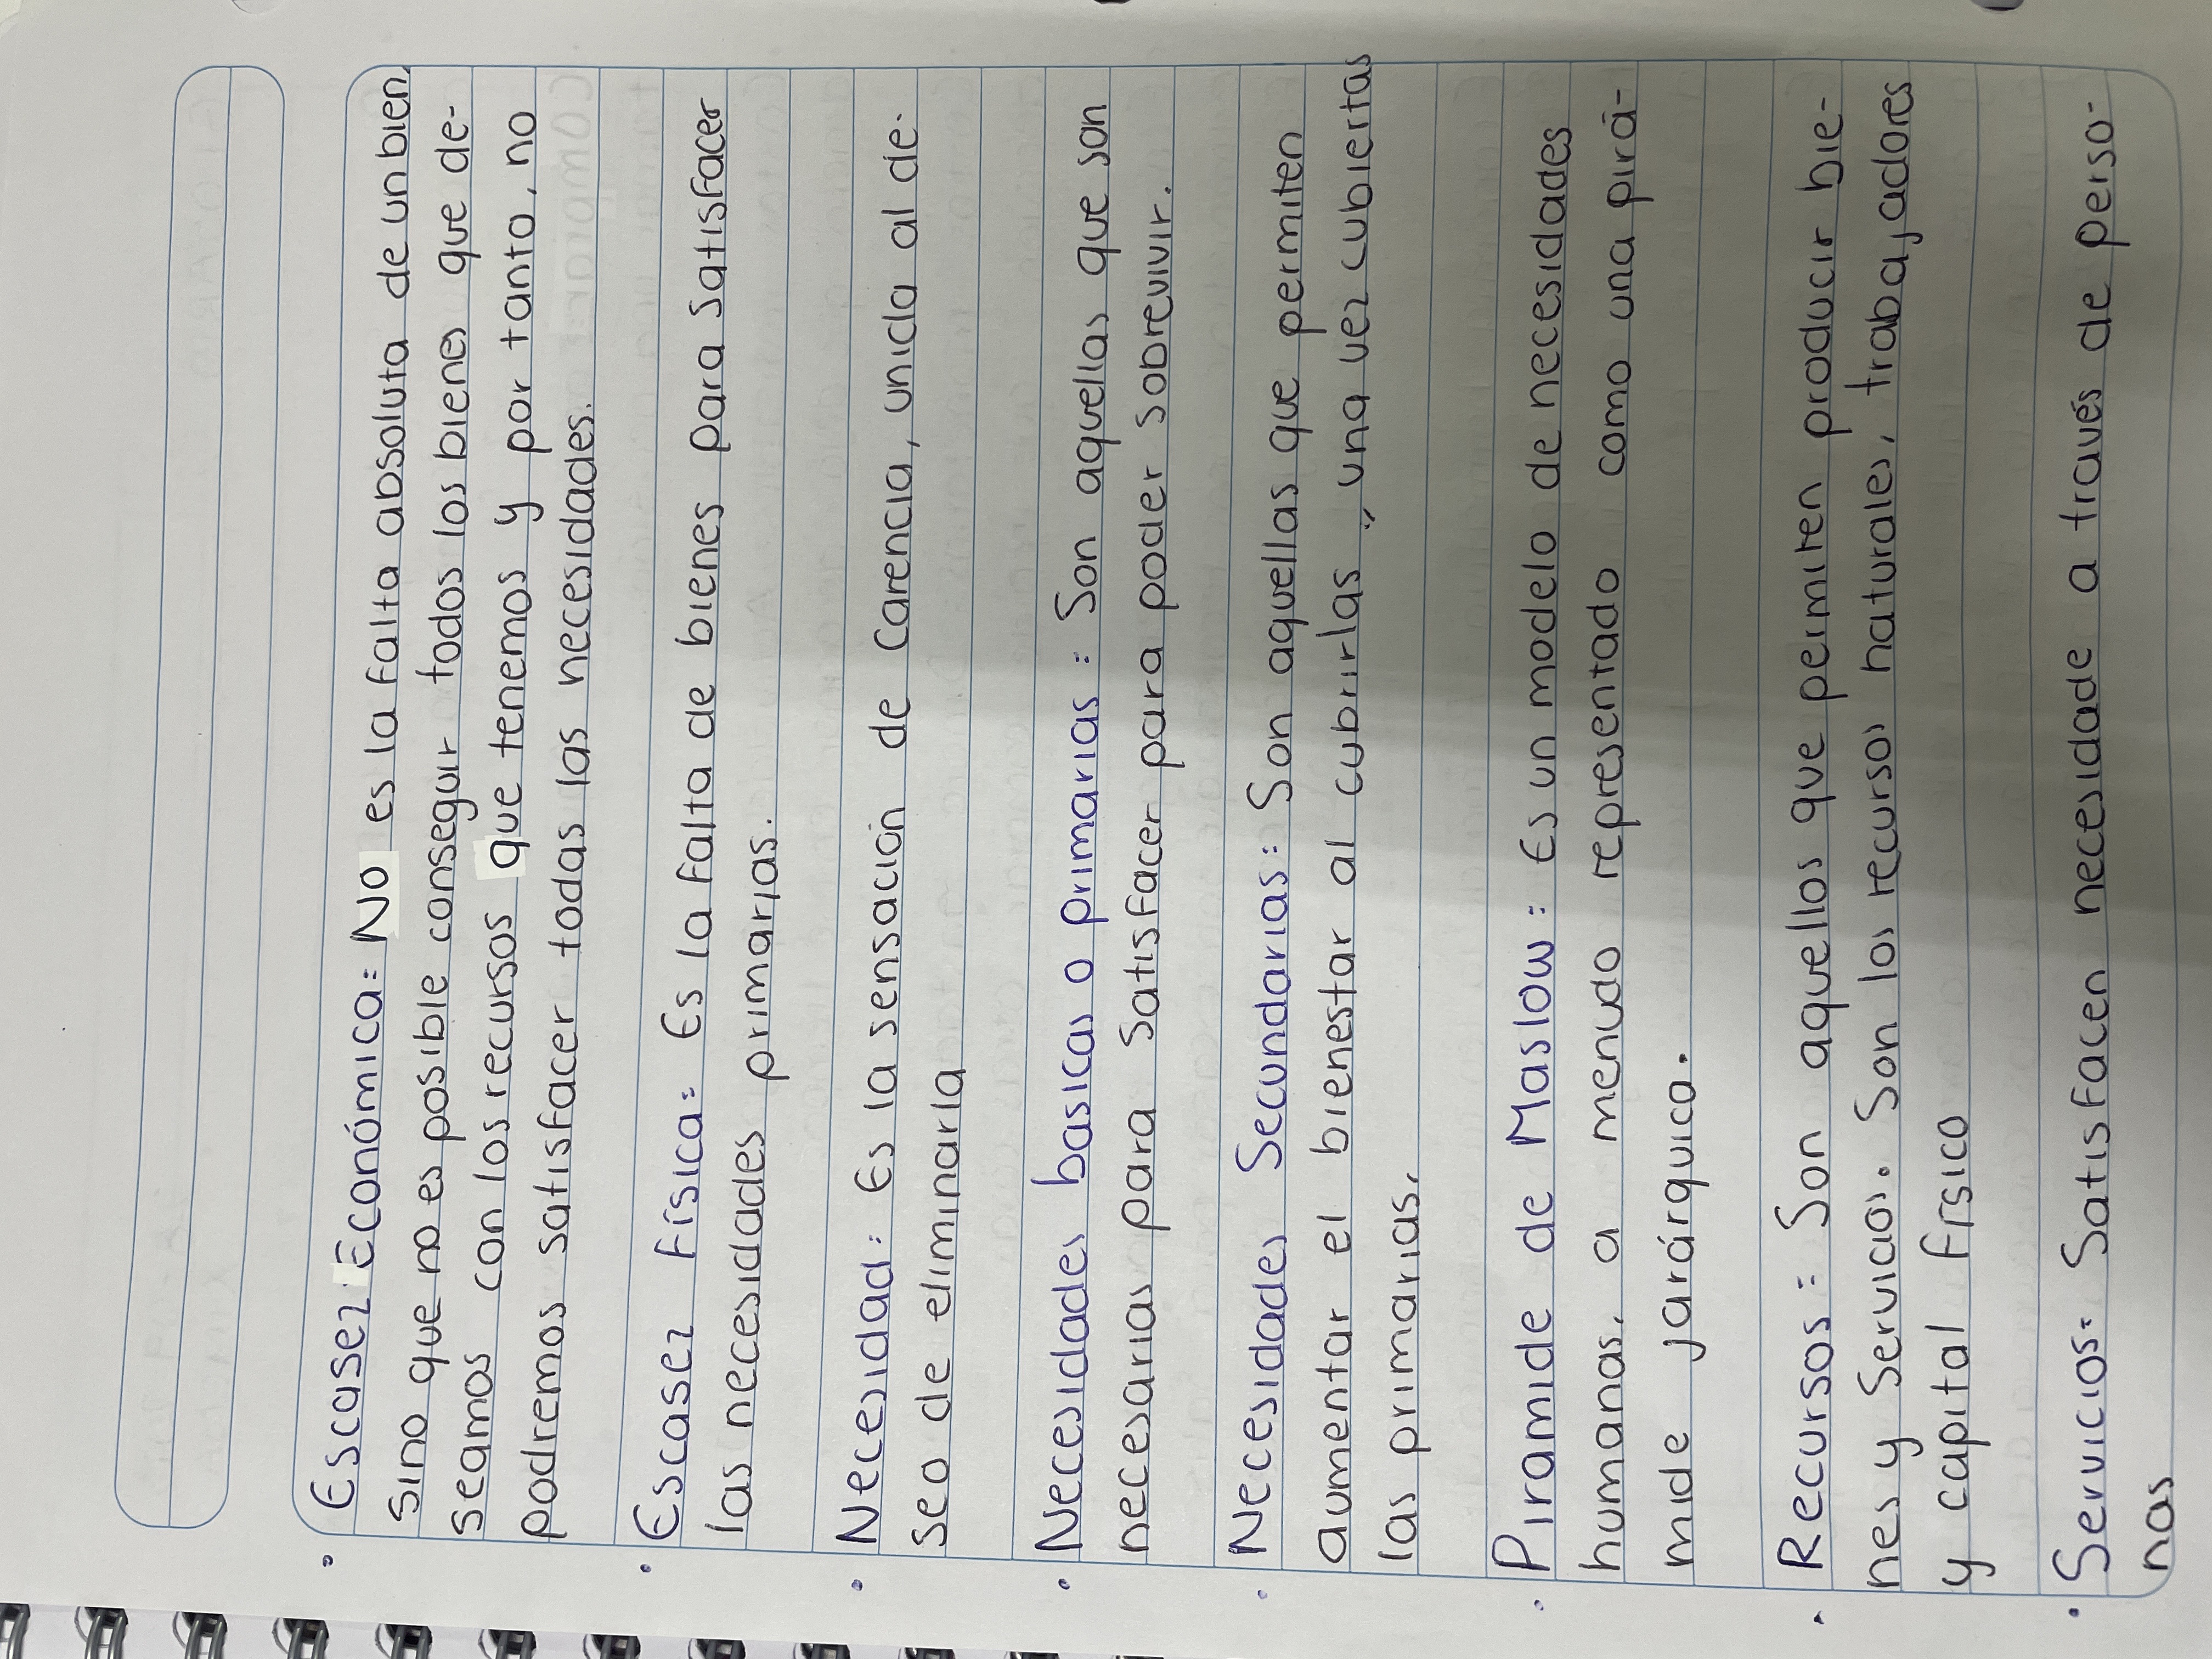 • Escasez Económica: No es la falta absoluta de un bien,
sino que no es posible conseguir todos los bienes que de-
seamos con los recursos que tenemos y por tanto, no
podremos satisfacer todas las necesidades.
• Escasez Física: Es la falta de bienes para satisfacer
las necesidades primarias.
• Necesidad: Es la sensación de carencia, unida al de-
seo de eliminarla
• Necesidades basicas o primarias: Son aquellas que son
necesarias para satisfacer para poder sobrevivir.
• Necesidades Secundarias: Son aquellas que permiten
aumentar el bienestar al cubrirlas, una vez cubiertas
las primarias.
• Piramide de Maslow: Es un modelo de necesidades
humanas, a menudo representado como una pirá-
mide jarárquico.
• Recursos: Son aquellos que permiten producir bie-
nes y Servicios. Son los recursos naturales, trabajadores
y capital físico
• Servicios: Satisfacen necesidade a través de perso-
nas